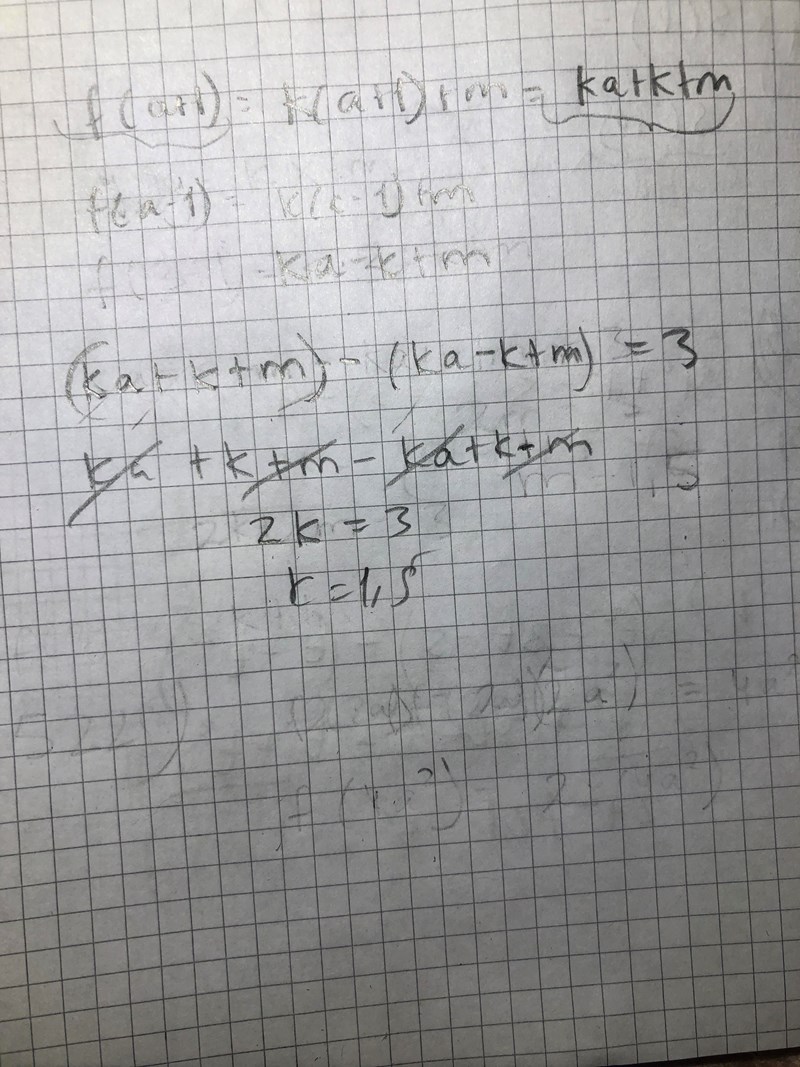 f(a+1) = k(a+1)+m = ka+k+m
f(a-1) = k(a-1)+m
ka-k+m
(ka+k+m) - (ka-k+m) = 3
ka + k + m - ka + k + m
2k = 3
k = 1,5